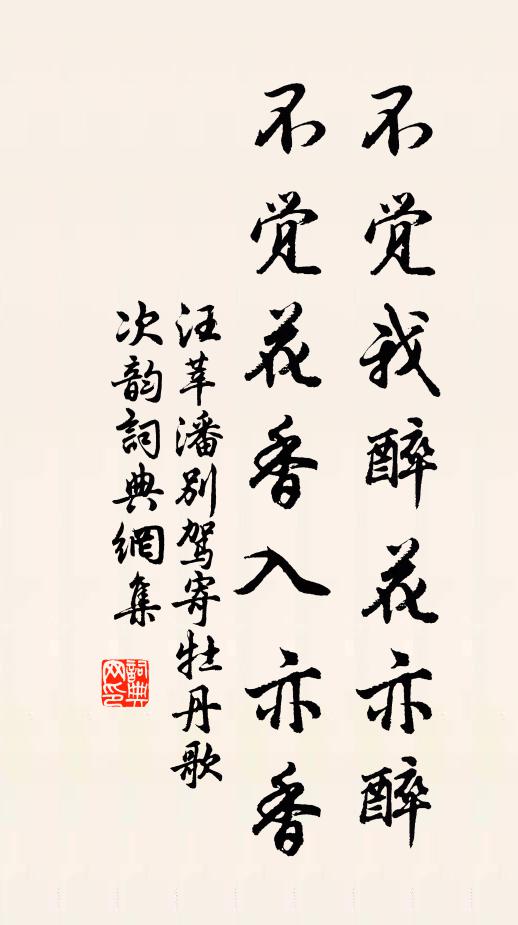 不觉我醉花亦醉
不觉花香入亦香
汪莘潘别驾寄牡丹歌
次韵詞典網集
詞典
网印